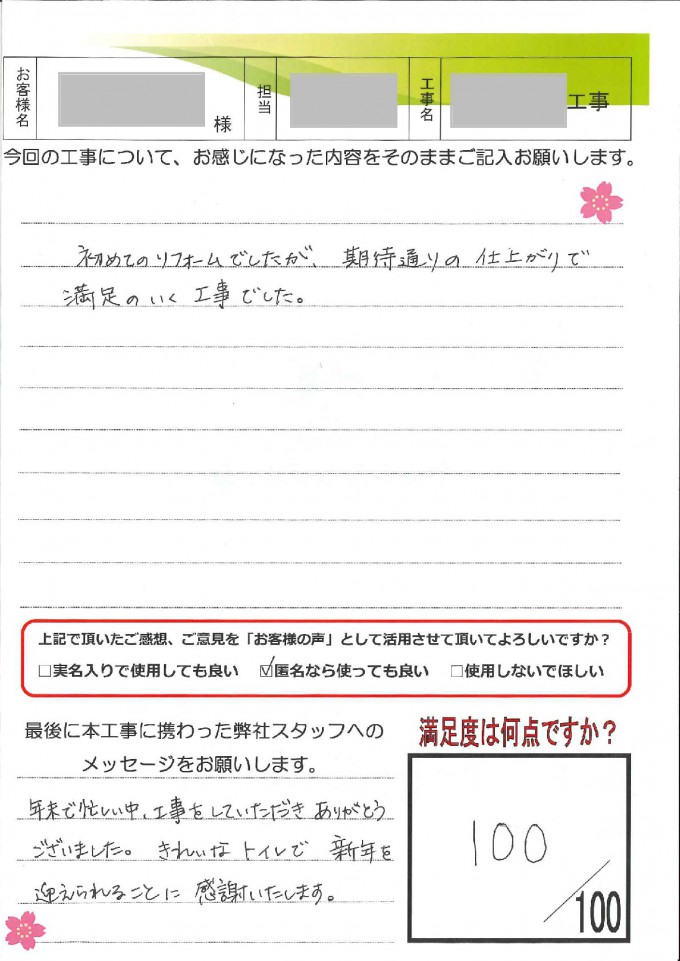 お客様名
様
担当
工事名
工事
今回の工事について、お感じになった内容をそのままご記入お願いします。
初めてのリフォームでしたが、期待通りの仕上がりで
満足のいく工事でした。
上記で頂いたご感想、ご意見を「お客様の声」として活用させて頂いてよろしいですか？
□実名入りで使用しても良い ☑匿名なら使っても良い □使用しないでほしい
最後に本工事に携わった弊社スタッフへの
メッセージをお願いします。
年末で忙しい中、工事をしていただきありがとう
ございました。きれいなトイレで新年を
迎えられることに感謝いたします。
満足度は何点ですか？
100
／100